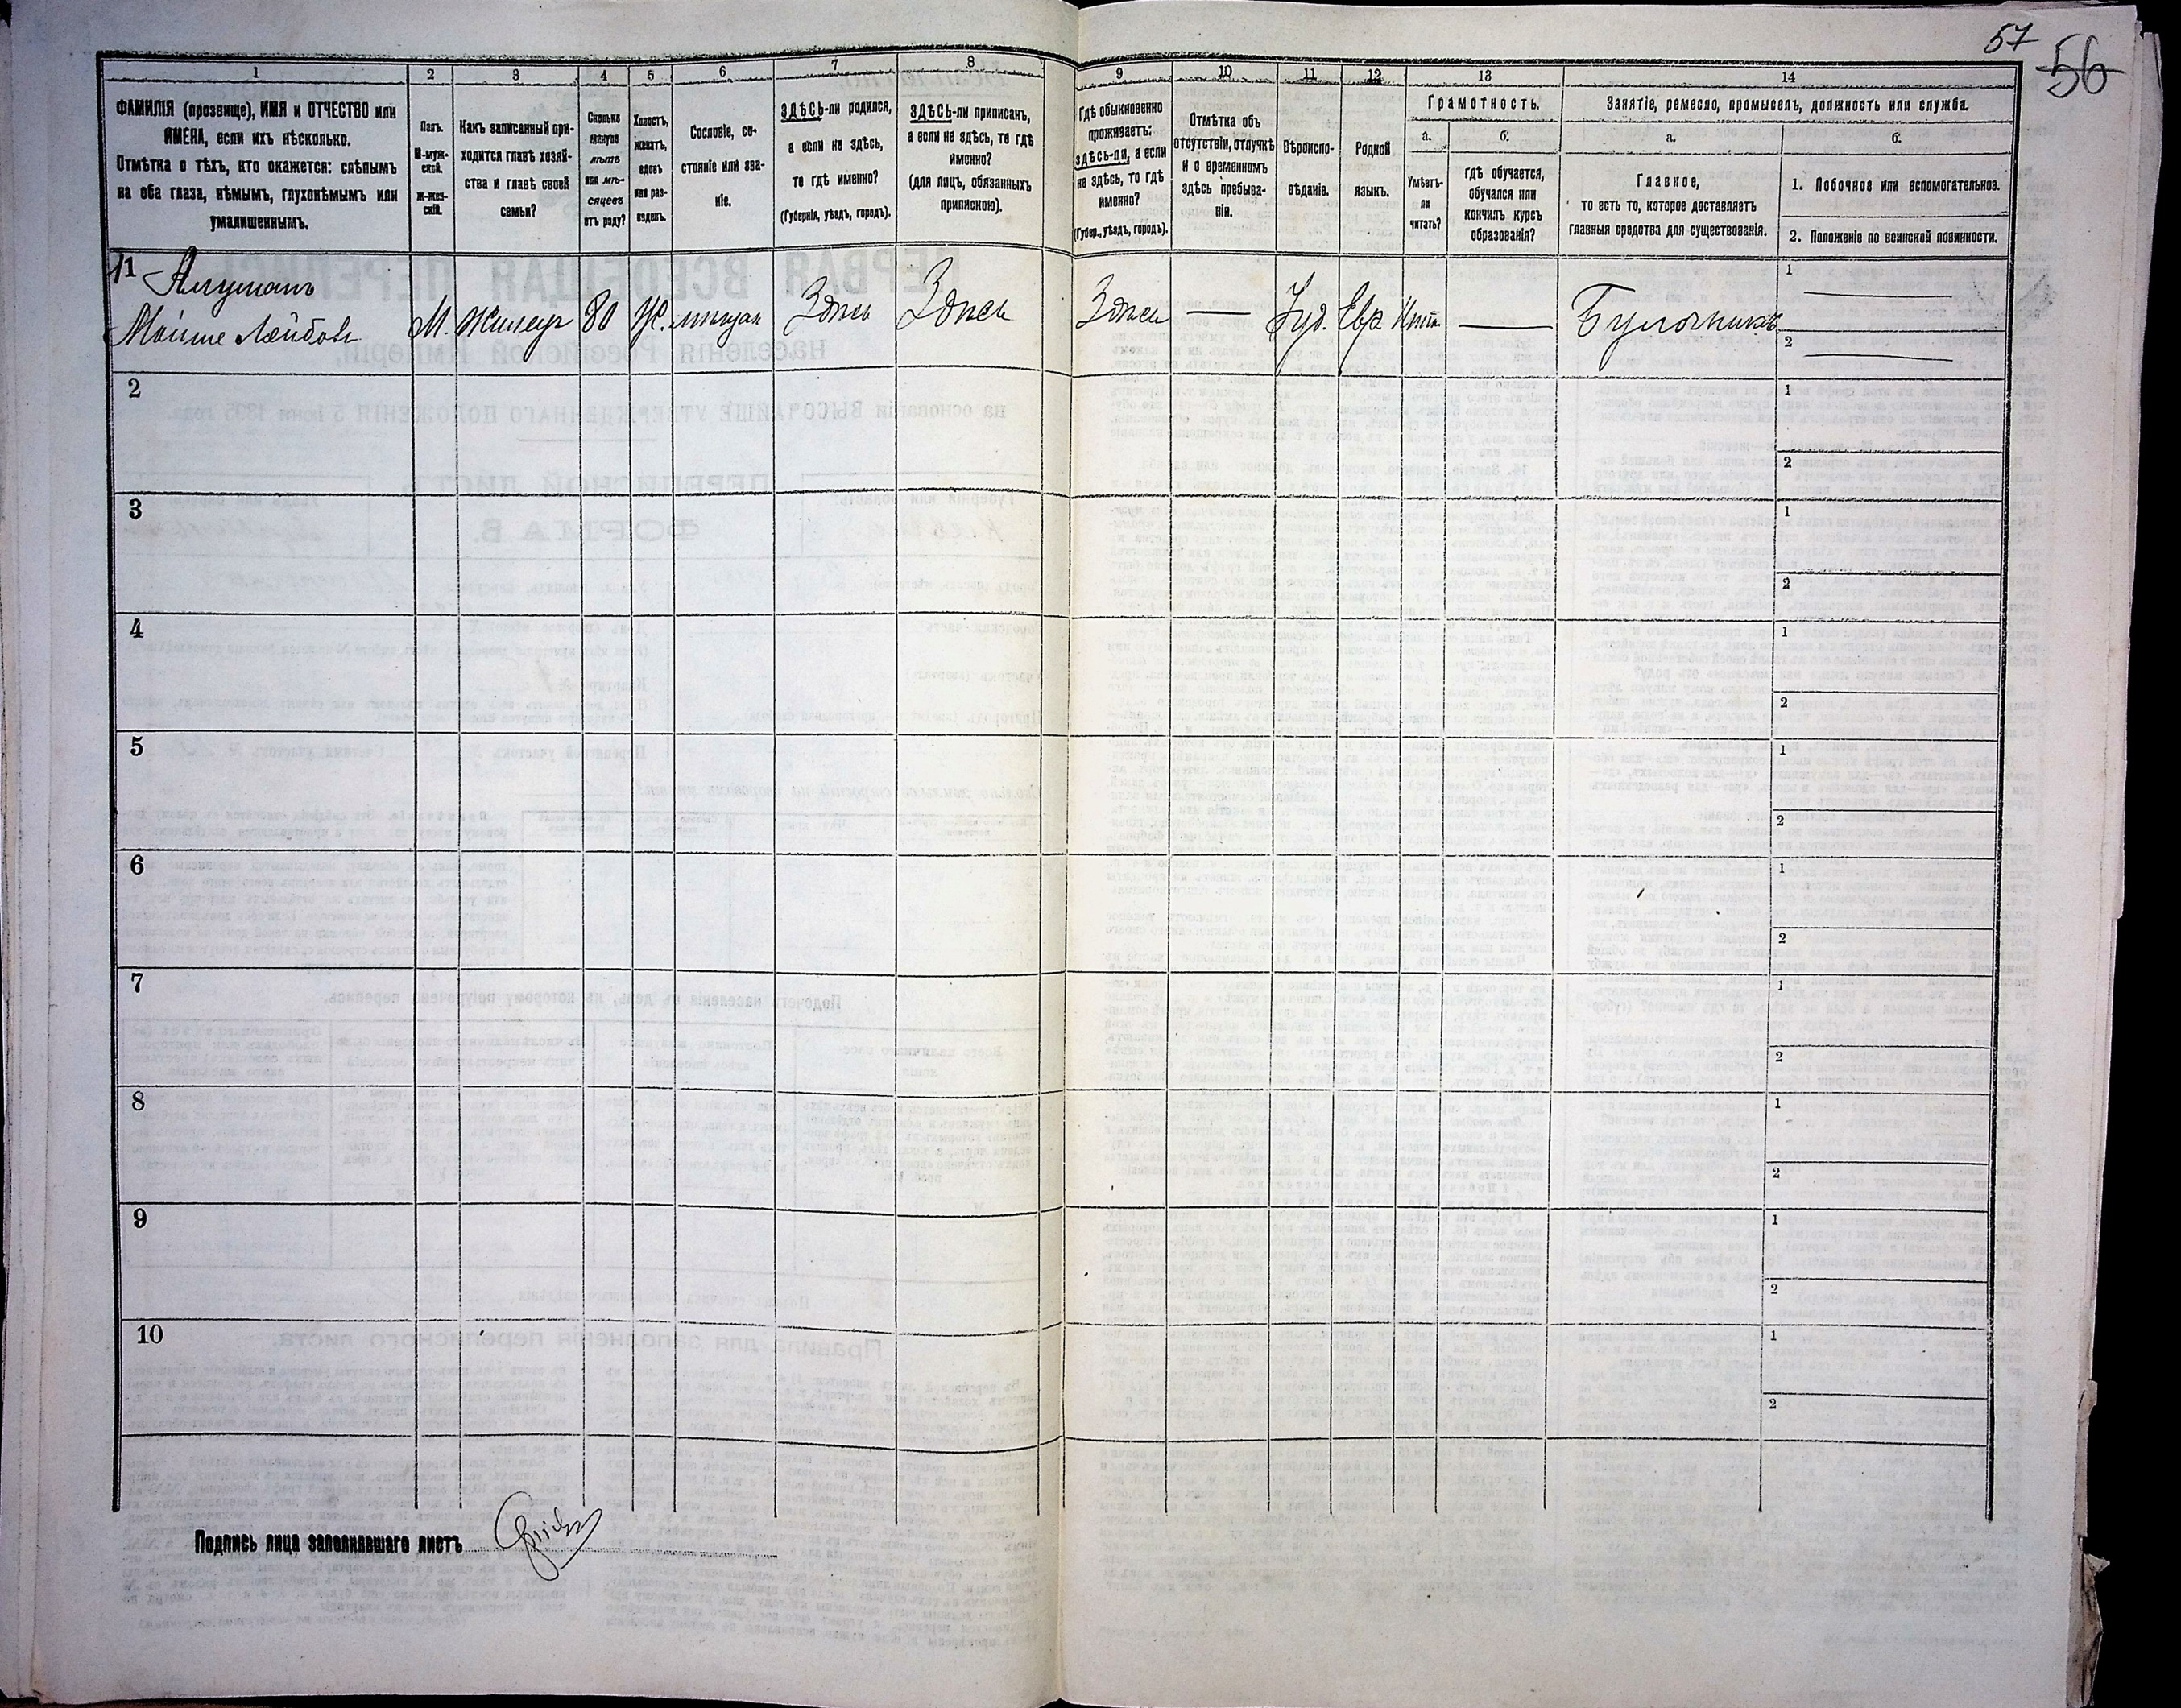 57
56
1
2
3
4
5
6
7
8
ФАМИЛІЯ (прозвище), ИМЯ и ОТЧЕСТВО или
ИМЕНА, если ихъ нѣсколько.
Отмѣтка о тѣхъ, кто окажется: слѣпымъ
на оба глаза, нѣмымъ, глухонѣмымъ или
умалишеннымъ.
Полъ.
М-муж-
ской.
Ж-жен-
скій.
Какъ записанный при-
ходится главѣ хозяй-
ства и главѣ своей
семьи?
Сколько
минуло
лѣтъ
или мѣ-
сяцевъ
отъ роду?
Холостъ,
женатъ,
вдовъ
или раз-
веденъ.
Сословіе, со-
стояніе или зва-
ніе.
ЗДѢСЬ-ли родился,
а если не здѣсь,
то гдѣ именно?
(Губернія, уѣздъ, городъ).
ЗДѢСЬ-ли приписанъ,
а если не здѣсь, то гдѣ
именно?
(для лицъ, обязанныхъ
припискою).
9
10
11
12
13
14
Гдѣ обыкновенно
проживаетъ:
здѣсь-ли, а если
не здѣсь, то гдѣ
именно?
(Губер., уѣздъ, городъ).
Отмѣтка объ
отсутствіи, отлучкѣ
и о временномъ
здѣсь пребыва-
ніи.
Вѣроиспо-
вѣданіе.
Родной
языкъ.
Грамотность.
а.
б.
Умѣетъ-
ли
читать?
гдѣ обучается,
обучался или
кончилъ курсъ
образованія?
Занятіе, ремесло, промыселъ, должность или служба.
а.
б.
Главное,
то есть то, которое доставляетъ
главныя средства для существованія.
1. Побочное или вспомогательное.
2. Положеніе по воинской повинности.
1
Мойше Лейбовъ
М.
Жилецъ
80
Ж.
Здѣсь
Здѣсь
Здѣсь
Іуд.
Евр.
Нѣтъ
Булочникъ
1
2
2
1
2
3
1
2
4
1
2
5
1
2
6
1
2
7
1
2
8
1
2
9
1
2
10
1
2
Подпись лица заполнявшаго листъ